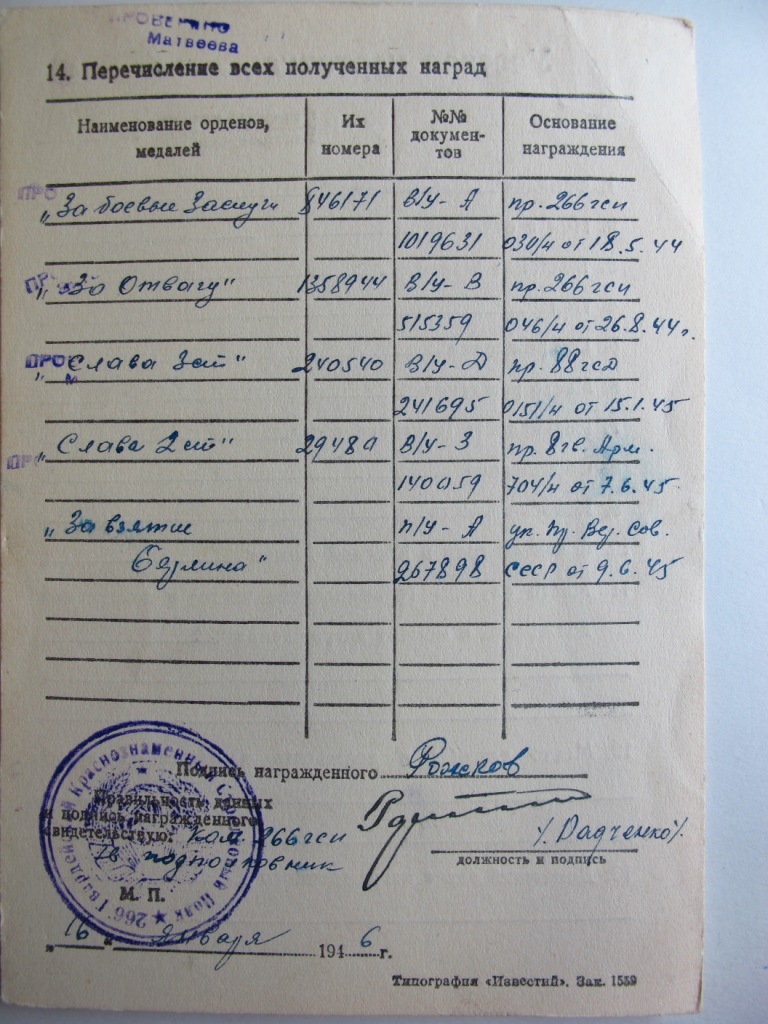 ПРОВЕРЕНО
Матвеева
14. Перечисление всех полученных наград
Наименование орденов, медалей
Их номера
№№ документов
Основание награждения
ПРО
„За боевые Заслуги 846171 В/у-А пр. 266 гсп
1019631 030/н от 18.5.44
„За Отвагу" 1358944 В/у-В пр. 266 гсп
515359 046/н от 26.8.44 г.
ПРО
„Слава 3 ст" 240540 В/у-Д пр. 88 гсд
241695 0151/н от 15.1.45
„Слава 2 ст" В/у-З пр. 8 гв. Арм.
704/н от 7.6.45.
„За взятие п/у-А ук. Пр. Вер. Сов.
Берлина" 267898 СССР от 9.6.45
Подпись награжденного Рожков
Правильность данных
и подпись награжденного
свидетельствую: Ком. 266 гсп
гв подполковник /Радченко/.
должность и подпись
М. П.
266 Гвардейский Краснознаменный Стрелковый Полк
„16" Января 1946 г.
Типография «Известий». Зак. 1559